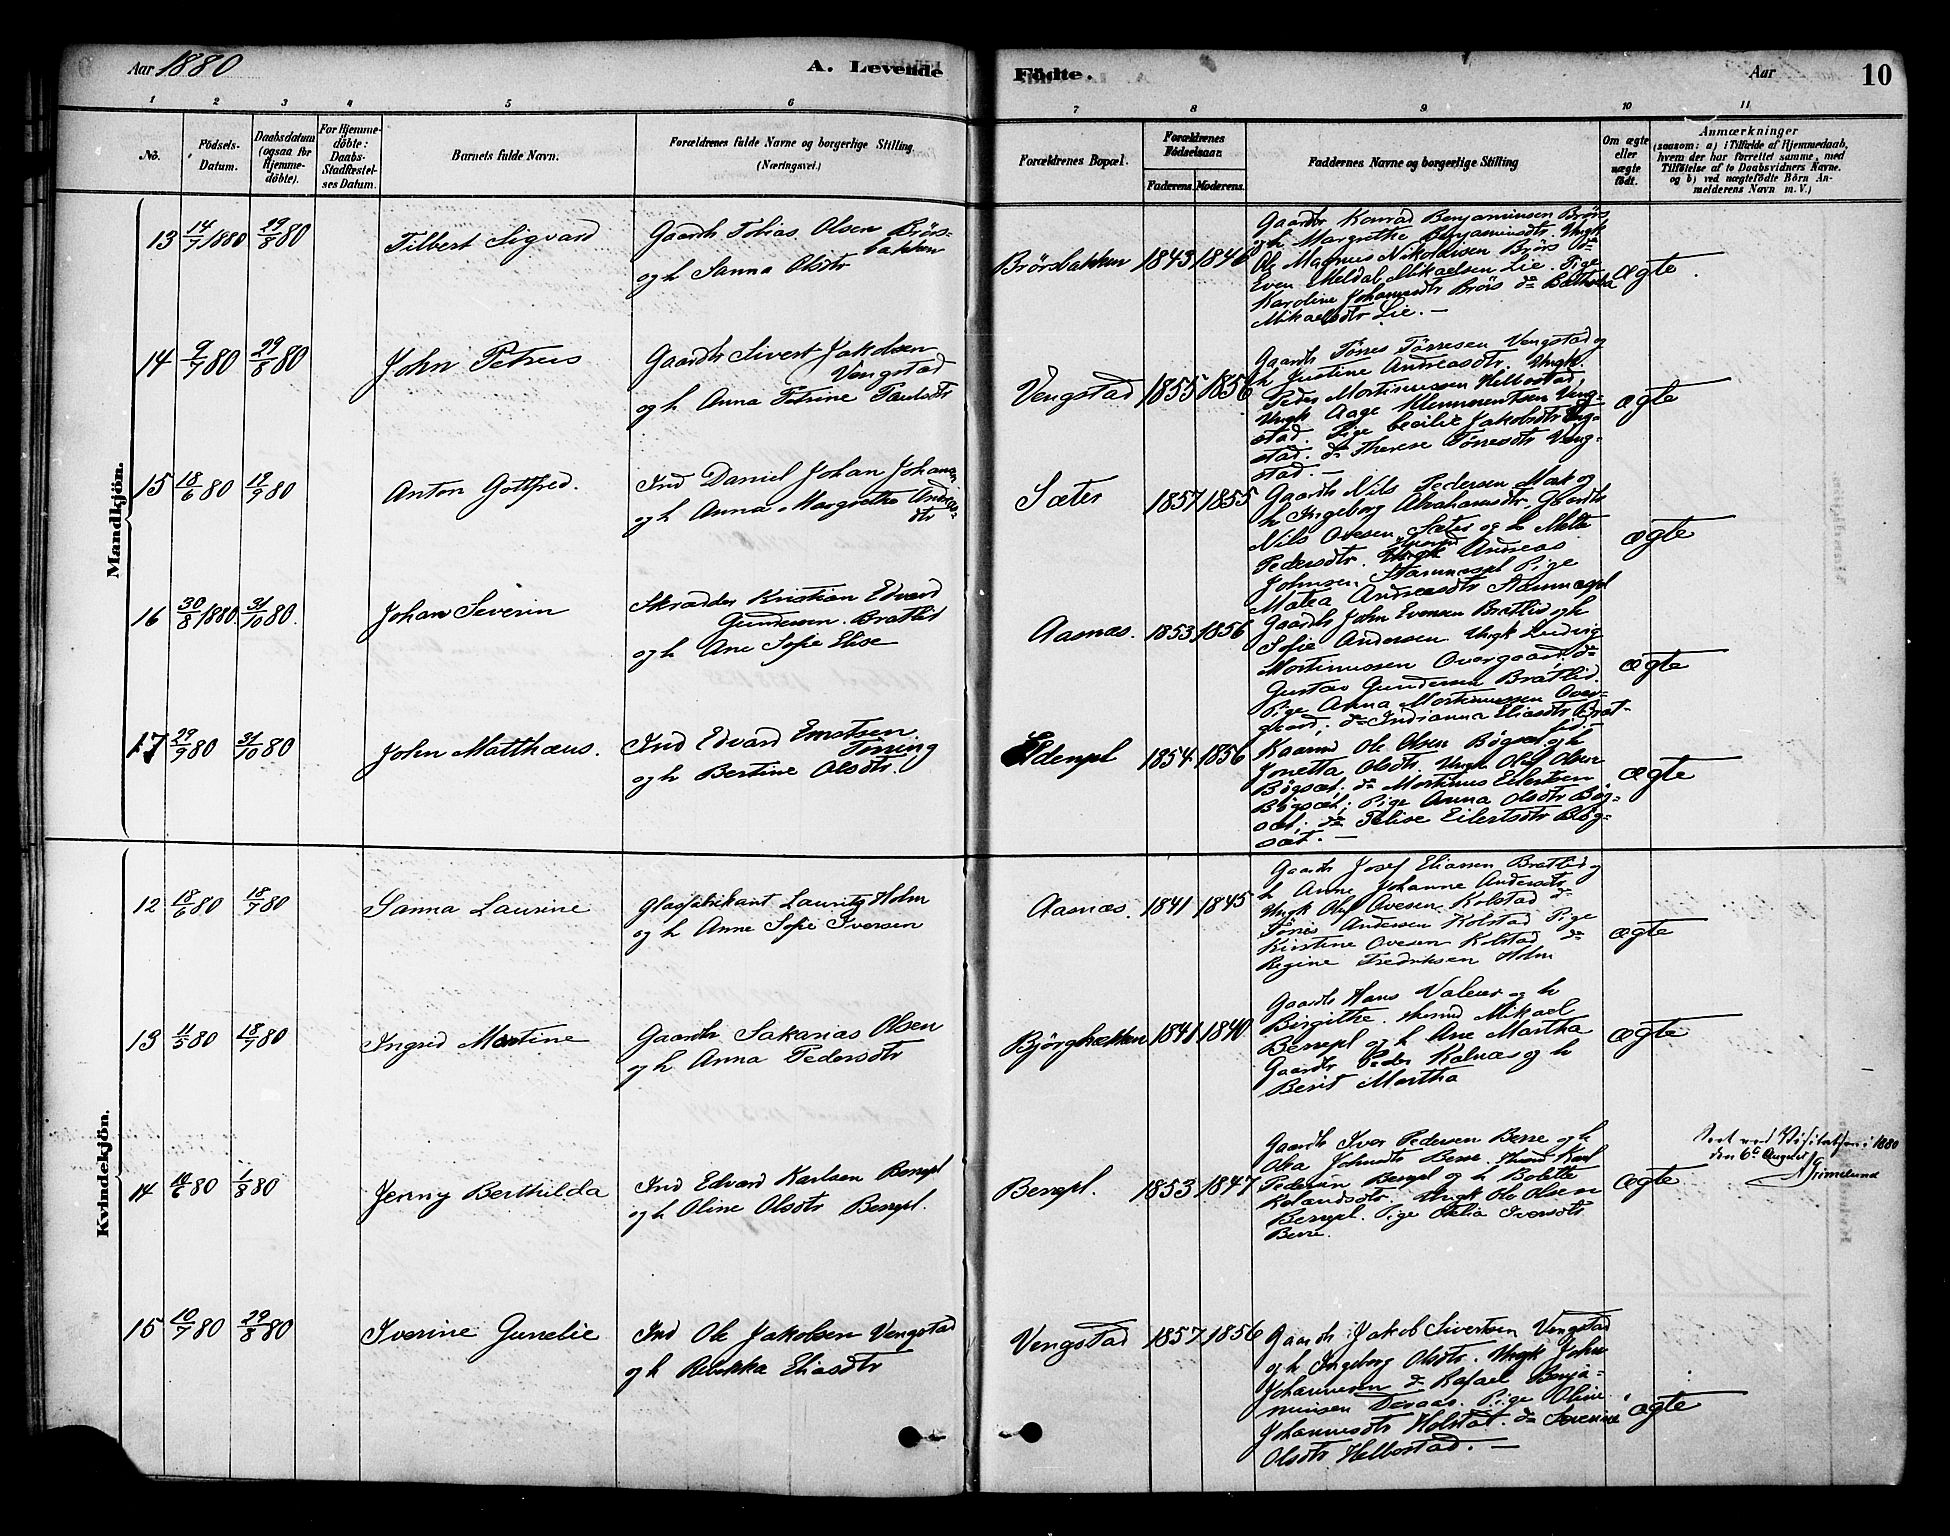 Aar 1880
A. Levende
Födte.
Aar
10
1 2 3 4 5 6 7 8 9 10 11
No.
Födsels-
Datum.
Daabsdatum
(ogsaa for
Hjemme-
döbte).
For Hjemme-
döbte:
Daabs-
Stadfæstel-
ses Datum.
Barnets fulde Navn.
Forældrenes fulde Navne og borgerlige Stilling
(Næringsvei.)
Forældrenes Bopæl.
Forældrenes
Födselsaar.
Faderens. Moderens.
Faddernes Navne og borgerlige Stilling
Om ægte
eller
uægte
födt.
Anmærkninger
(saasom: a) i Tilfælde af Hjemmedaab,
hvem der har forrettet samme, med
Tilföielse af to Daabsvidners Navne.
og b) ved uægtefödte Börn An-
melderens Navn m. V.)
Mandkjön.
13 14/7 1880 29/8 80
Tilbert Sigvard
Gaardb Tobias Olsen Brörs-
bakken
og h Sanna Olsdtr
Brörsbakken 1843 1846
Gaardbr Konrad Benjaminsen Brörs
og h. Margrethe Benjaminsdtr. Ungk
Ole Magnus Nikolaisen Brörs do
Even Meldal Mikaelsen Lie. Pige
Karoline Johannesdtr Brörs do
Mikaelsdtr Lie. —
ægte
14 9/7 80 29/8 80
John Petreus
Gaardb Sivert Jakobsen
Vengstad
og h Anna Petrine Paulsdtr
Vengstad 1855 1856
Gaardb Tönnes Törresen Vengstad og
h Justine Andreasdtr. Ungk
Peder Mortinussen Helbostad,
Ungk Aage Klemmentsen Veng-
stad. Pige Cecilie Jakobsdtr Veng-
stad. do Therese Törresdtr Veng-
stad. —
ægte
15 18/6 80 12/9 80
Anton Gottfred.
Ind Daniel Johan Johansen
og h Anna Margrethe Andreas-
dtr
Sæter 1857 1855
Gaardb Nils Pedersen Mark og
h Ingeborg Abrahamsdtr, Gaardb
Nils Ovesen Sæter og h Mette
Pedersdtr. Ungk Andreas
Johnsen Pige
Matea Andreasdtr
ægte
16 30/8 1880. 31/10 80.
Johan Severin
Skrædder Kristian Edvard
Gundersen Bratlid
og h Ane Sofie Elise
Aasnæs. 1853 1856
Gaardb John Evensen Bratlid og h
Sofie Andersen Ungk Ludvig
Mortinussen Overgaard, do
Gustav Gundersen Bratlid.
Pige Anna Mortinussen Over-
gaard; do Indianna Eliasdtr Brat-
lid —
ægte
17 29/9 80 31/10 80
John Matthæus.
Ind Edvard Ernstsen
og h Bertine Olsdtr.
Eldenpl 1854 1856
Kaarmd Ole Olsen Bögset og h
Jonetta Olsdtr Ungk Olaf Olsen
Bögsæt; do Mortinus Eilertsen
Bögsæt; Pige Anna Olsdtr Bög-
sæt; do Eilertsdtr Bög-
sæt. —
ægte
Kvindekjön.
12 18/6 80 18/7 80
Sanna Laurine
Glasfabrikant Lauritz Holm
og h Anne Sofie Iversen
Aasnæs. 1841 1845
Gaardb Josef Eliassen Bratlid og
h Anne Johanne Andersdtr
Ungk Ole Ovesen Kolstad do
Tönnes Andersen Kolstad Pige
Kirstine Ovesen Kolstad do
Regine Fredriksen Holm
ægte
13 11/5 80 18/7 80
Ingrid Martine
Gaardb Sakarias Olsen
og h Anna Pedersdtr
Björgbækken 1841 1840
Gaardb Hans Valeur og h
Birgithe. Husmd Mikael
Berrepl og h Ane Martha
Gaardb Peder Kalnæs og h
Berit Martha
ægte
14 14/6 80 1/8 80
Jenny Berthilda
Ind Edvard Karlsen Berrepl
og h Oline Olsdtr Berrepl.
Berrepl. 1853 1847
Gaardb Iver Pedersen Berre og h
Olea Johnsdtr Berre. Husmd Karl
Pedersen Berrepl og h Bolette
Rolandsdtr. Ungk Ole Olsen
Berrepl. Pige Iversdtr
Berre.
ægte
Seet ved Visitatsen i 1880
den 6te August
Grimelund
15 10/7 80 29/8 80
Iverine Gunelie
Ind Ole Jakobsen Vengstad
og h Rebekka Eliasdtr
Vengstad 1857 1856
Gaardb Jakob Sivertsen Vengstad
og h Ingeborg Olsdtr. Ungk John
Johannesen do Rafael Benja-
minsen Doraas. Pige Oline
Johannesdtr Holstad. do Severine
Olsdtr Helbostad. —
ægte